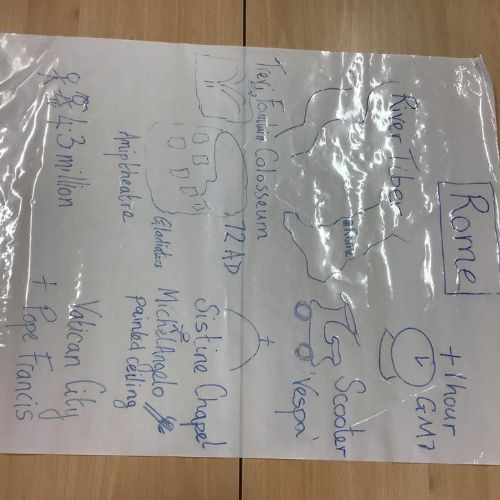 Rome
River Tiber
+1 hour
GMT
Scooter
Vespa
Trevi Fountain
Colosseum
72 AD
Gladiators
Ampitheatre
Sistine Chapel
Michelangelo
painted ceiling
4.3 million
Vatican City
+ Pope Francis